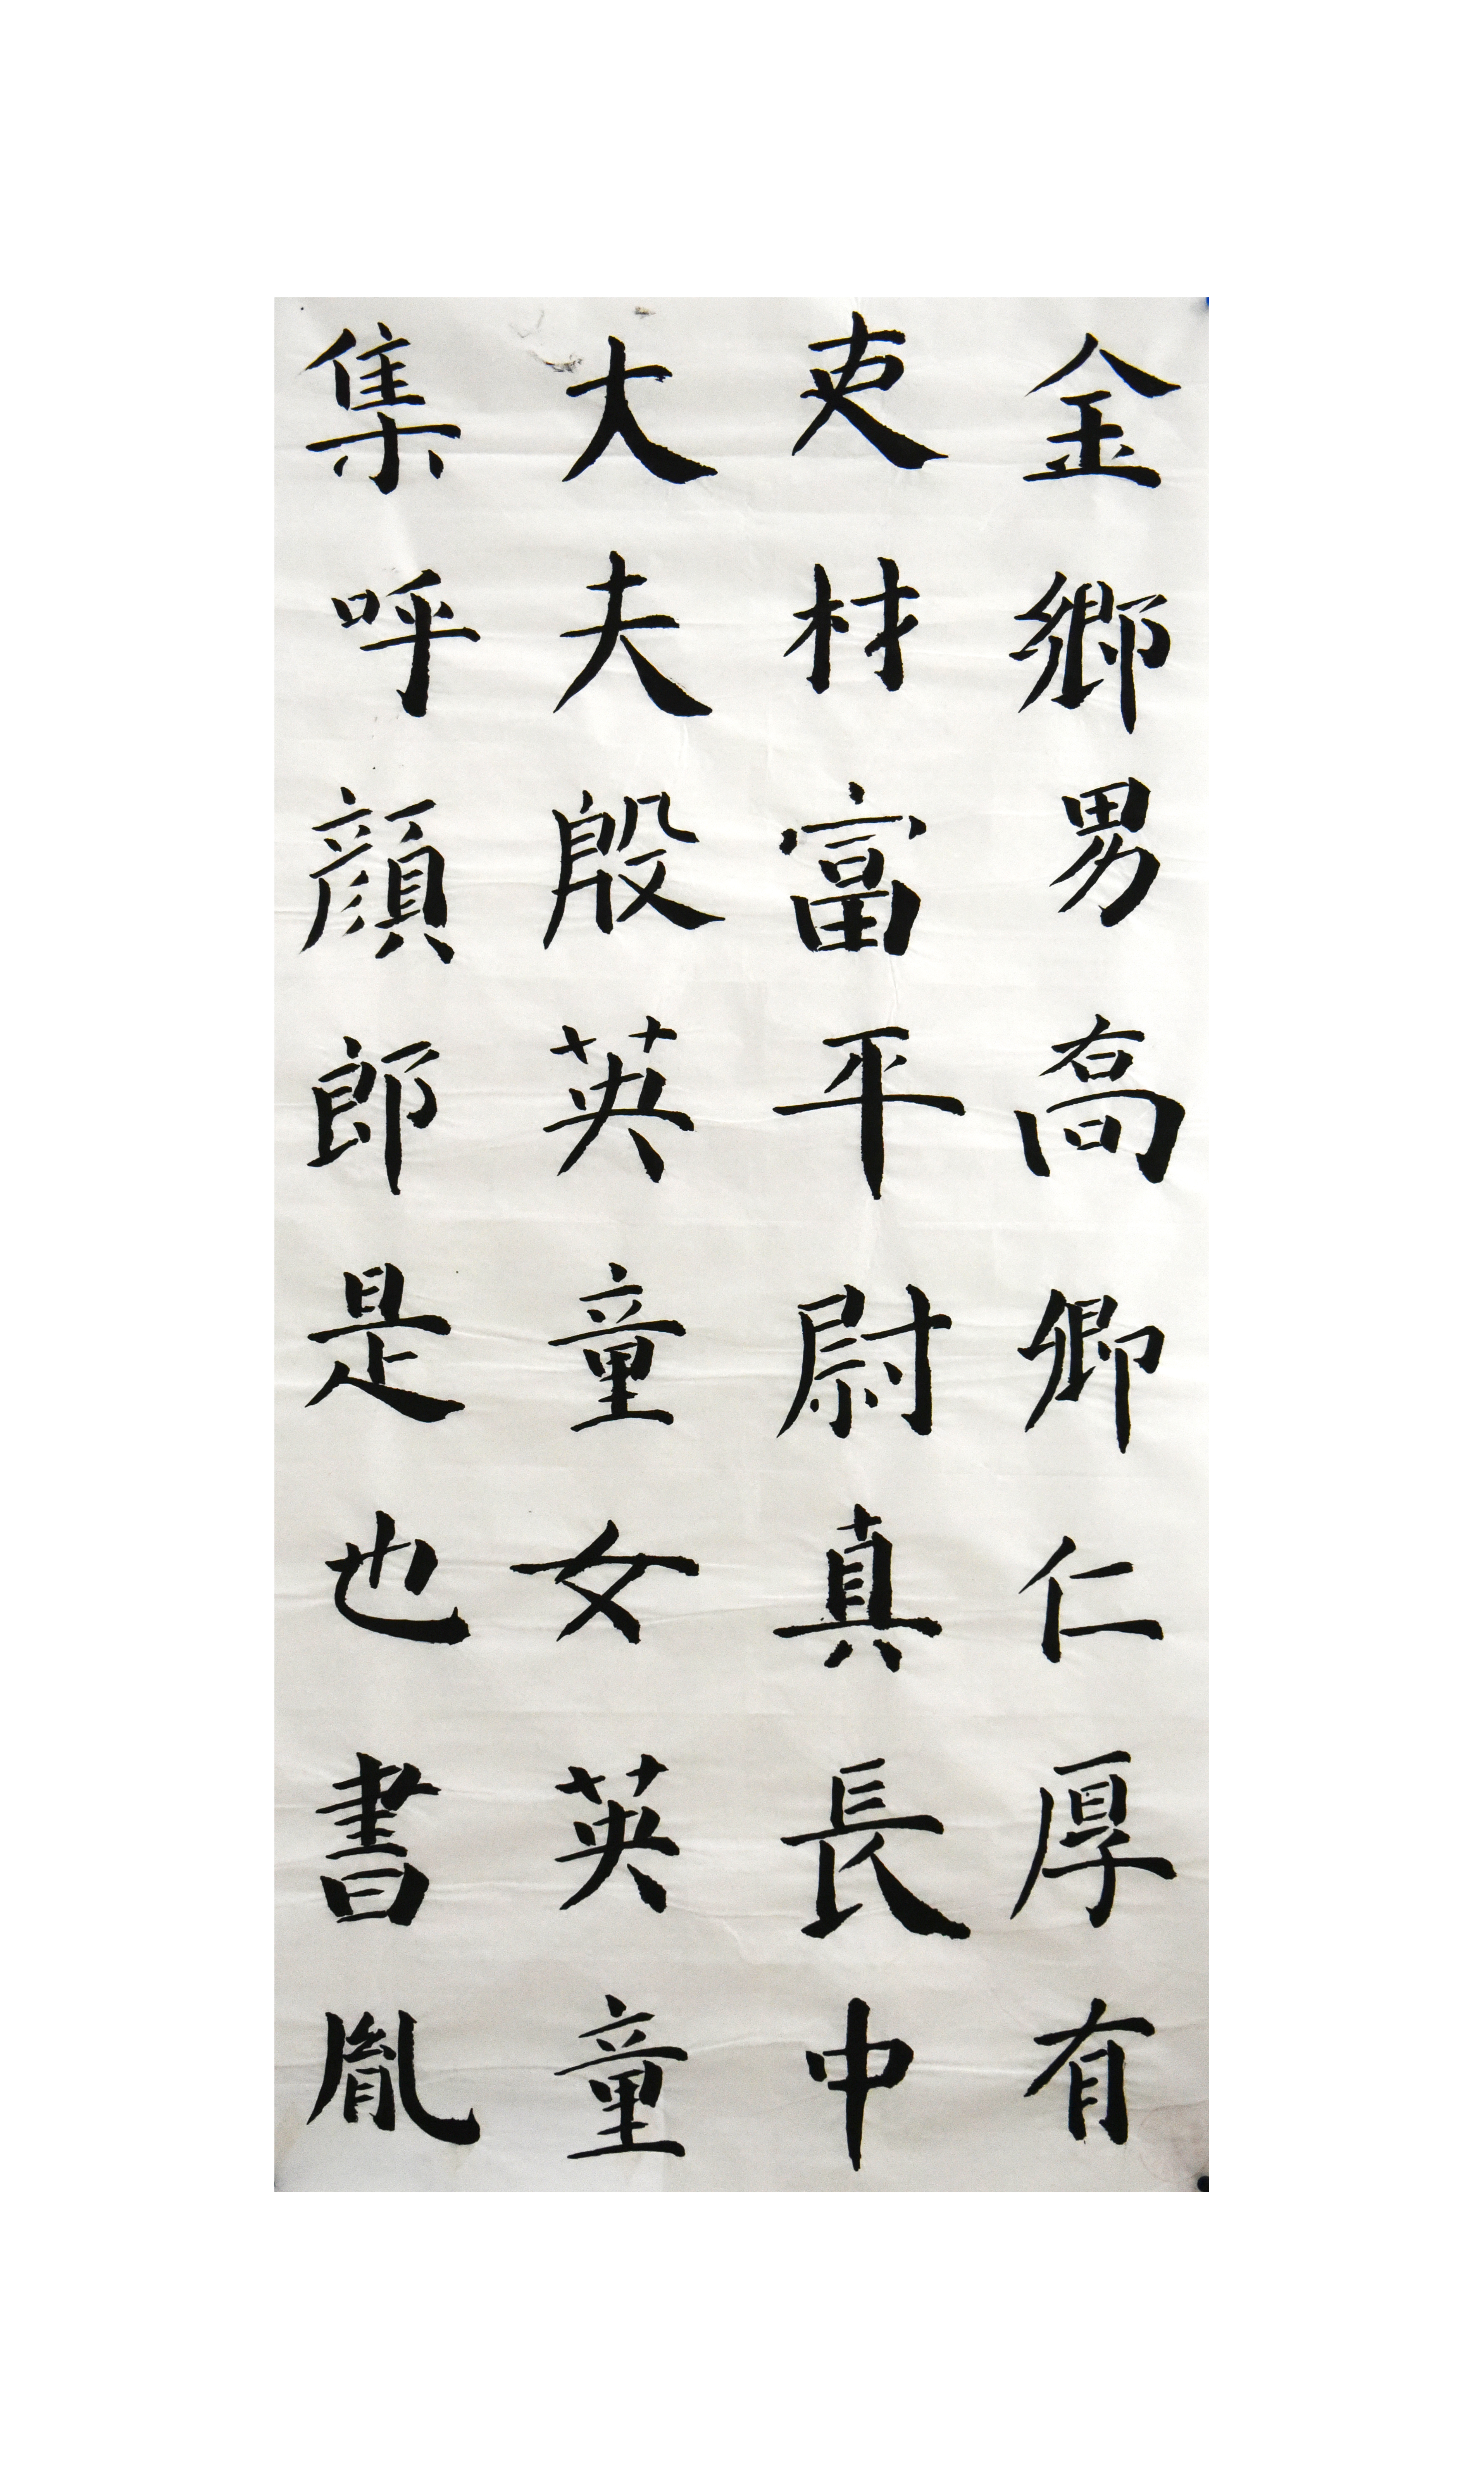 金鄉男髙卿仁厚有
吏材富平尉真長中
大夫殷英童女英童
集呼顏郎是也書胤